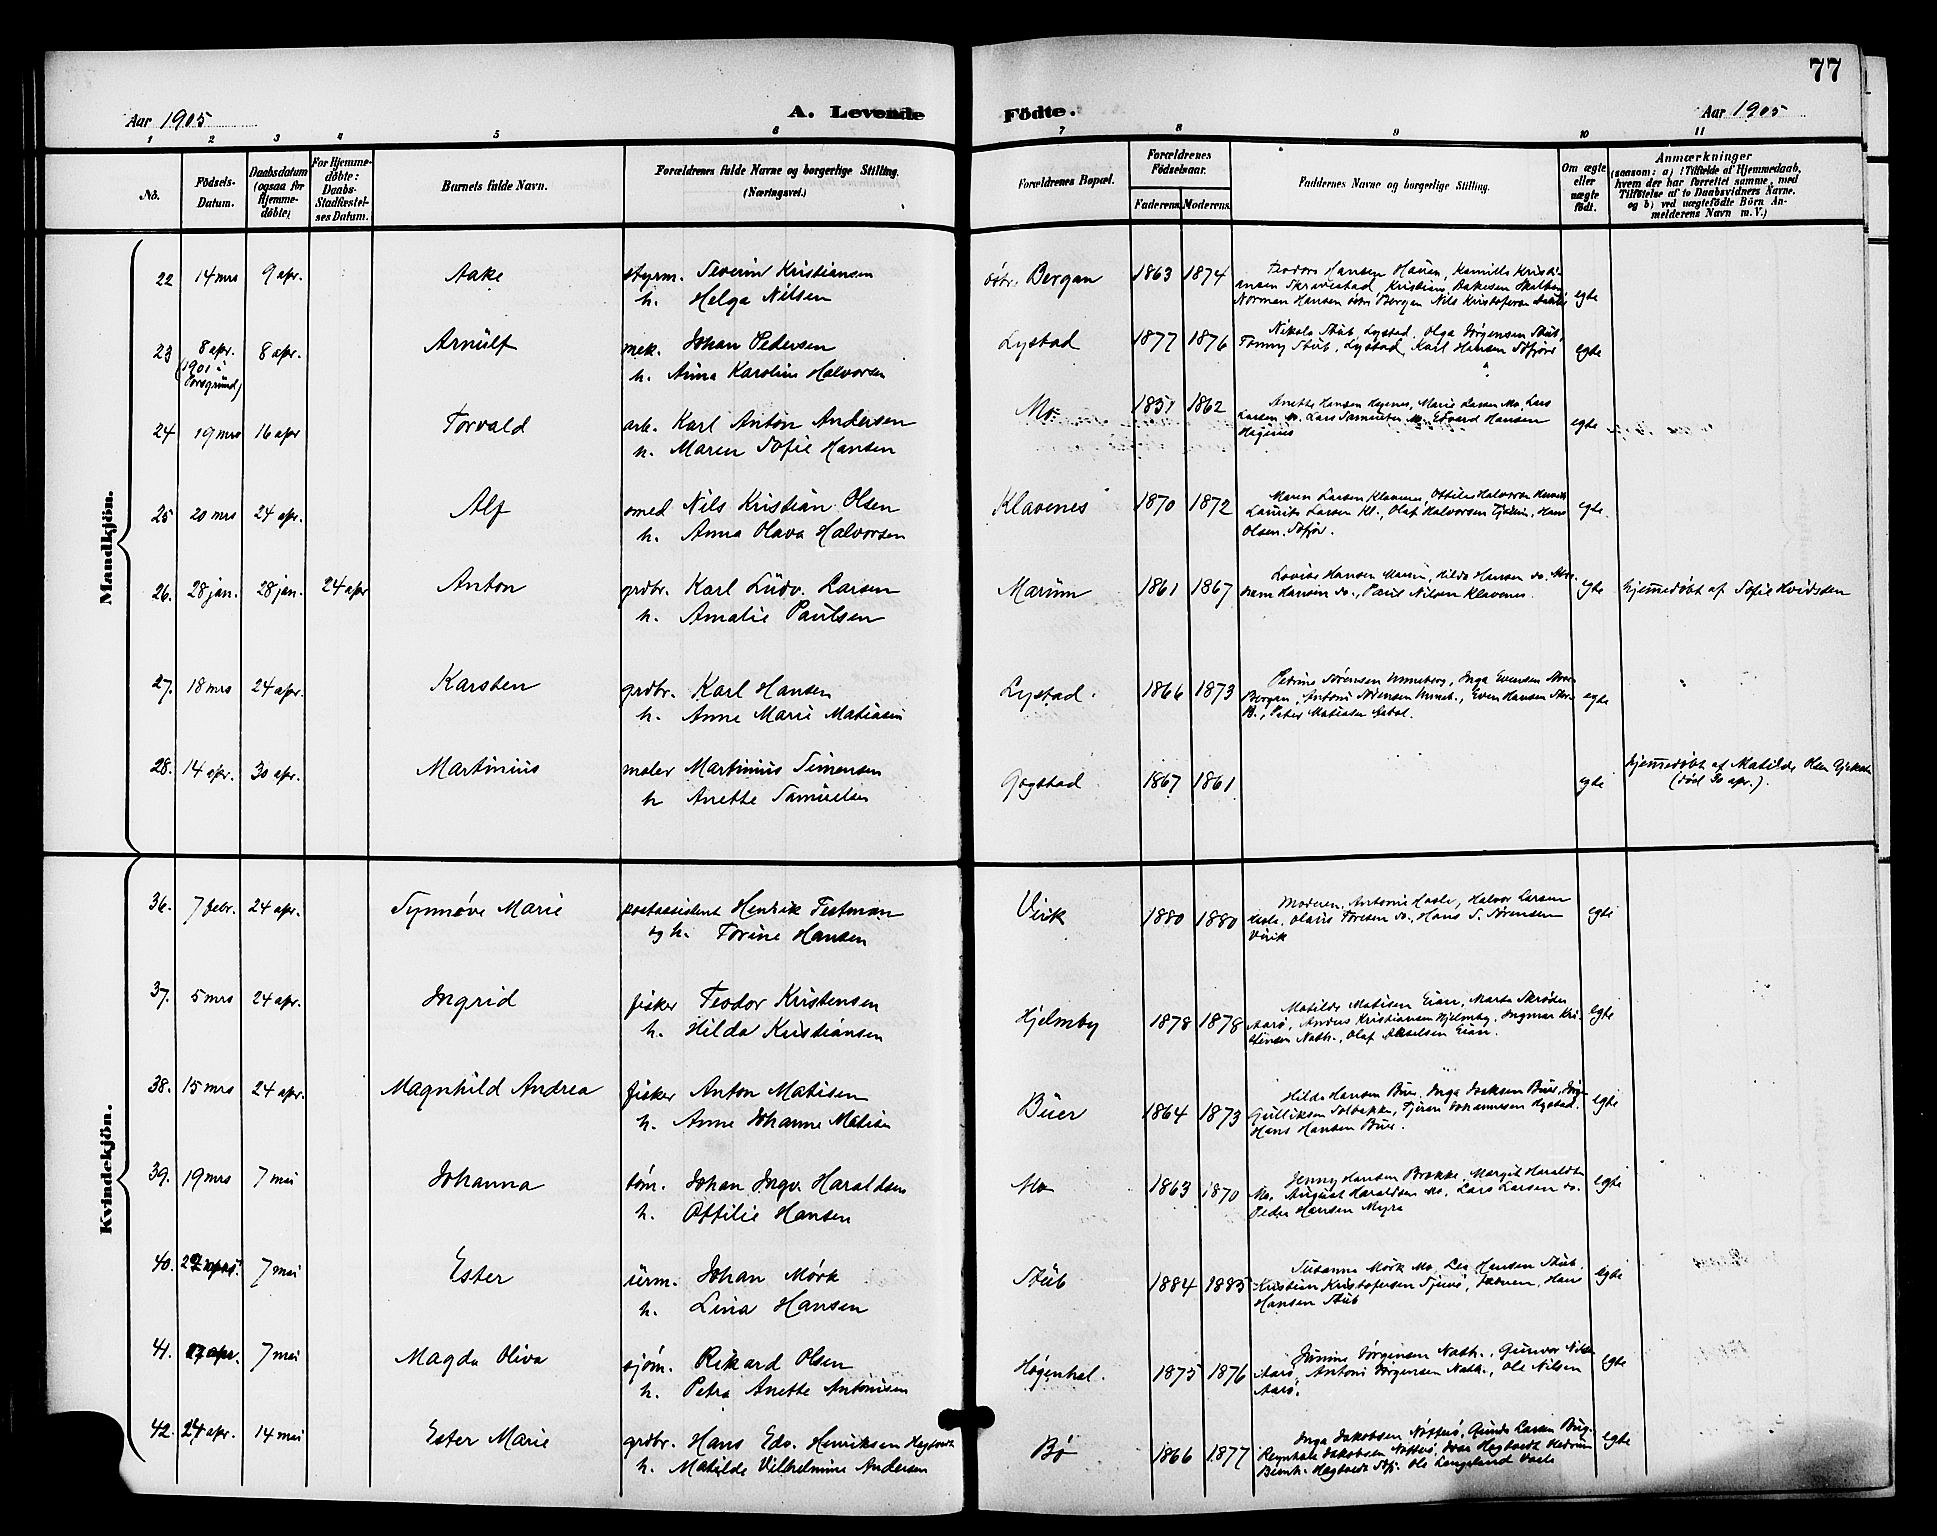 77
Aar 1905
A. Levende
Födte.
Aar 1905
1 2 3 4 5 6 7 8 9 10 11
No.
Födsels-
Datum.
Daabsdatum
(ogsaa for
Hjemme-
döbte)
For Hjemme-
döbte:
Daabs-
Stadfæstel-
ses Datum.
Barnets fulde Navn.
Forældrenes fulde Navne og borgerlige Stilling.
(Næringsvei.)
Forældrenes Bopæl.
Forældrenes
Födselsaar.
Faderens. Moderens.
Faddernes Navne og borgerlige Stilling.
Om ægte
eller
uægte
födt.
Anmærkninger
(saasom: a) i Tilfælde af Hjemmedaab,
hvem der har forrettet samme, med
Tilföielse af to Daabsvidners Navne,
og b) ved uægtefödte Börn An-
melderens Navn m. V.)
Mandkjön.
22 14 mrs 9 apr. Aake styrm. Severin Kristiansen
h. Helga Nilsen
östr. Bergan 1863 1874
Norman Hansen östr. Bergan Nils
egte
23 8 apr.
(1901 i
Porsgrund)
8 apr. Arnulf mek. Johan Pedersen
h. Anna Karoline Halvorsen
Lystad 1877 1876 Nikolo Stub Lystad, Olga Jörgensen Stub,
Fanny Stub, Lystad, Karl Hansen
egte
24 19 mrs 16 apr Torvald arb. Karl Anton Andersen
h. Maren Sofie Hansen
Mo 1862 Anette Hansen Marie Larsen Mo, Lars
Larsen Edvard Hansen
egte
25 20 mrs 24 apr. Alf smed Nils Kristian Olsen
h. Anna Olava Halvorsen
Klavenes 1870 1872 Maren Larsen Klavenes, Ottilie Halvorsen
Laurits Larsen Kl., Olaf Halvorsen Hans
Olsen
egte
26. 28 jan. 28 jan. 24 apr Anton grdbr. Karl Ludv. Larsen
h. Amalie Paulsen
Marum 1861 1867 Lovise Hansen Marum, Hilda Hansen do.
Hansen do., Paul Nilsen Klavenes.
egte hjemmedøbt af Sofie Hvidsten
27. 18 mrs 24 apr. Karsten grdbr. Karl Hansen
h. Anne Marie Matiasen
Lystad. 1866 1873 Petrine Sörensen Unneberg, Inga Evensen
Bergan, Antoni Sörensen Unneb., Even Hansen
B., Peter Matiasen
egte
28. 14 apr. 30 apr. Martinius maler Martinius Simensen
h Anette Samuelsen
Gogstad 1867 1861 egte hjemmedøbt af Matilde Olsen
(död 30 apr.).
Kvindekjön.
36. 7 febr. 24 apr. Synnøve Marie postassistent Henrik Testman
og h. Torine Hansen
Virik 1880 1880 Moderen, Antonie Hasle, Halvor Larsen
Hasle, Olaus Toresen do., Hans S. Sörensen
Virik
egte
37. 5 mrs 24 apr. Ingrid fisker Teodor Kristensen
h. Hilda Kristiansen
Hjelmby 1878 1878 Matilde Matisen Eian, Marta
Aarø, Anders Kristiansen Hjelmby, Ingmar Kri-
stensen Nath., Olaf Akselsen Eian.
egte
38. 15 mrs 24 apr. Magnhild Andrea fisker Anton Matisen
h. Anne Johanne Matisen
Buer 1864 1873 Hilda Hansen Buer, Inga Isaksen Buer,
Gulliksen Solbakke, Johannesen
Hans Hansen Buer.
egte
39. 19 mrs 7 mai Johanna töm. Johan Ingv. Haraldsen
h. Ottilie Hansen
Mo 1863 1870 Jenny Hansen Brekke, Margit Haraldsen
Mo, August Haraldsen Mo, Lars Larsen do.
Peder Hansen Myra
egte
40. 7 mai Ester urm. Johan Mørk
h. Lina Hansen
Stub 1884 1885 Susanne Mørk Mo, Lea Hansen Stub,
Kristian Kristofersen Hans
Hansen Stub
egte
41. apr. 7 mai Magda Oliva sjöm. Rikard Olsen
h. Petra Anette Antonisen
Høgenhal. 1875 1876 Junine Jörgensen Nath., Gunvor
Aarø, Antoni Jörgensen Nath., Ole Nilsen
Aarø.
egte
42. 24 apr. 14 mai Ester Marie grdbr. Hans Edv. Henriksen Hegtvedt
h. Matilde Vilhelmine Andersen
Bø 1866 1877 Inga Jakobsen Nøtterø, Larsen
Jakobsen Nøtterø, Hegtvedt
Hegtvedt Ole Langeland
egte